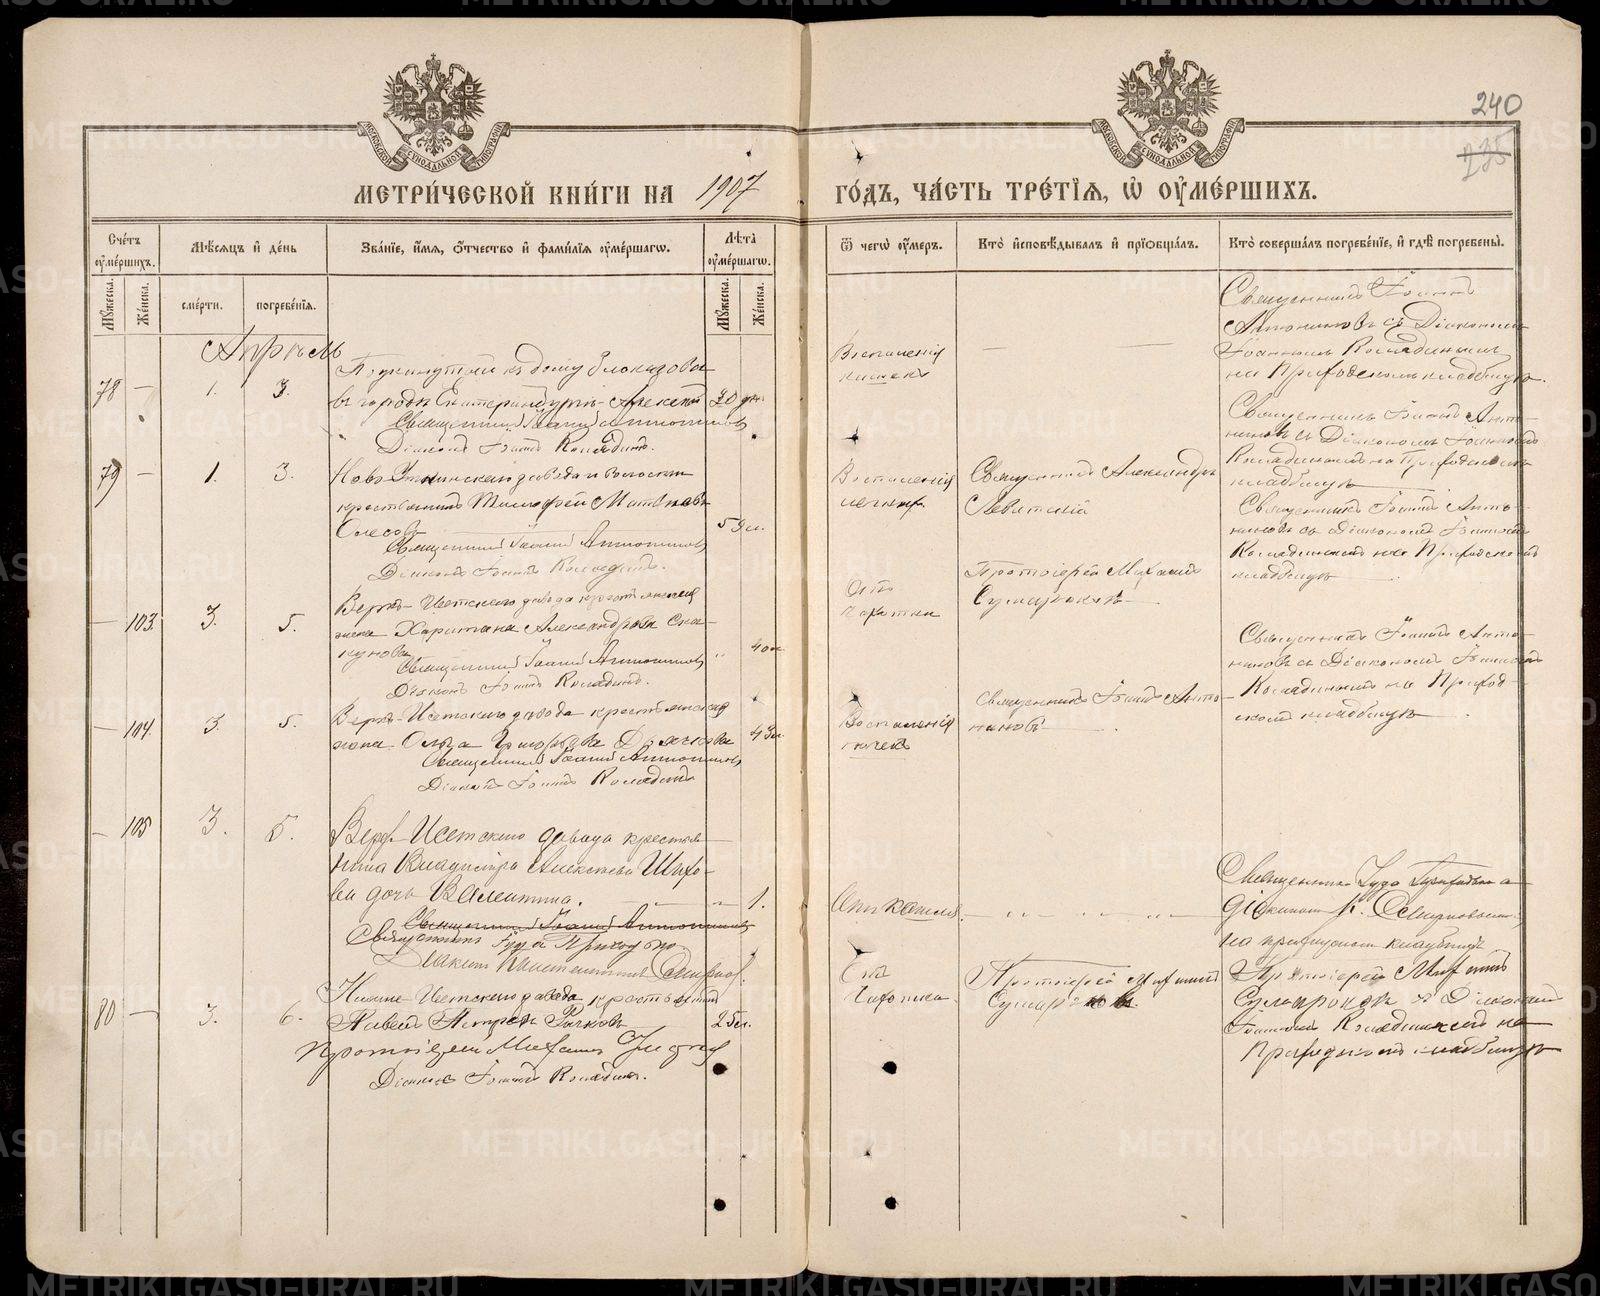 240
235
МОСКОВСКОЙ СУНОДАЛЬНОЙ ТИПОГРАФИИ
МОСКОВСКОЙ СУНОДАЛЬНОЙ ТИПОГРАФИИ
МЕТРИ́ЧЕСКОЙ КНИ́ГИ НА 1907 ГО́ДЪ, ЧА́СТЬ ТРЕ́ТІЯ, Ѡ ОУ҆МЕ́РШИХЪ.
Сче́тъ оу҆ме́ршихъ.
Мѣсяцъ и де́нь
Зва́нїе, и҆́мя, ѻ҆́тчество и фами́лїя оу҆ме́ршагѡ.
Лѣта̀ оу҆ме́ршагѡ.
Ѿ чегѡ̀ оу҆́меръ.
Кто̀ и҆сповѣ́дывалъ и прїѡбща́лъ.
Кто̀ соверша́лъ погребе́нїе, и гдѣ̀ погребены̀.
Му́жеска.
Же́нска.
сме́рти.
погребе́нїя.
Му́жеска.
Же́нска.
Апрѣль
78 — 1. 3.
Подкинутый къ дому Блохазова
въ городѣ Екатеринбургѣ Алексѣй
20 дн.
Священникъ Іоаннъ Антониновъ
Діаконъ Іоаннъ Колядинъ.
Воспаленія
кишекъ
— —
Священникъ Іоаннъ
Антониновъ съ Діакономъ
Іоанномъ Колядинымъ
на Приходскомъ кладбищѣ.
79 — 1. 3.
Ново-Уткинскаго завода и волости
крестьянинъ Тимофей Матвѣевъ
Олесовъ
59 л.
Священникъ Іоаннъ Антониновъ
Діаконъ Іоаннъ Колядинъ.
Воспаленія
легкихъ
Священникъ Александръ
Левитскій
Священникъ Іоаннъ Анто-
ниновъ съ Діакономъ Іоанномъ
Колядинымъ на Приходскомъ
кладбищѣ
— 103. 3. 5.
Верхъ-Исетскаго завода крестьянина
жена Харитина Александрова Ска-
кунова
40 л.
Священникъ Іоаннъ Антониновъ
Діаконъ Іоаннъ Колядинъ.
Отъ
чахотки
Протоіерей Михаилъ
Сумароковъ
Священникъ Іоаннъ Анто-
ниновъ съ Діакономъ Іоанномъ
Колядинымъ на Приходскомъ
кладбищѣ
— 104. 3. 5.
Верхъ-Исетскаго завода крестьянская
жена Ольга Григорьева Дьячкова
43 л.
Священникъ Іоаннъ Антониновъ
Діаконъ Іоаннъ Колядинъ
Воспаленія
почекъ
Священникъ Іоаннъ Анто-
ниновъ
Священникъ Іоаннъ Анто-
ниновъ съ Діакономъ Іоанномъ
Колядинымъ на Приход-
скомъ кладбищѣ
— 105 3. 5.
Верх-Исетскаго завода крестья-
нина Владиміра Алексѣева Шихо-
ва дочь Валентина.
1.
Священникъ Іоаннъ Антониновъ
Священникъ Іуда Приходько
Діаконъ Константинъ Смирнов.
Отъ кашля.
Священникъ Іуда Приходько а
діаконом К. Смирновымъ
на приходском кладбищѣ
80 — 3. 6.
Нижне-Исетскаго завода крестьянинъ
Павелъ Петровъ Рачковъ
25 л.
Протоіерей Михаилъ
Діаконъ Іоаннъ Колядинъ.
Отъ
чахотки
Протоіерей Михаилъ
Сумароковъ
Протоіерей Михаилъ
Сумароковъ съ Діакономъ
Іоанномъ Колядинымъ на
Приходскомъ кладбищѣ
METRIKI.GASO-URAL.RU